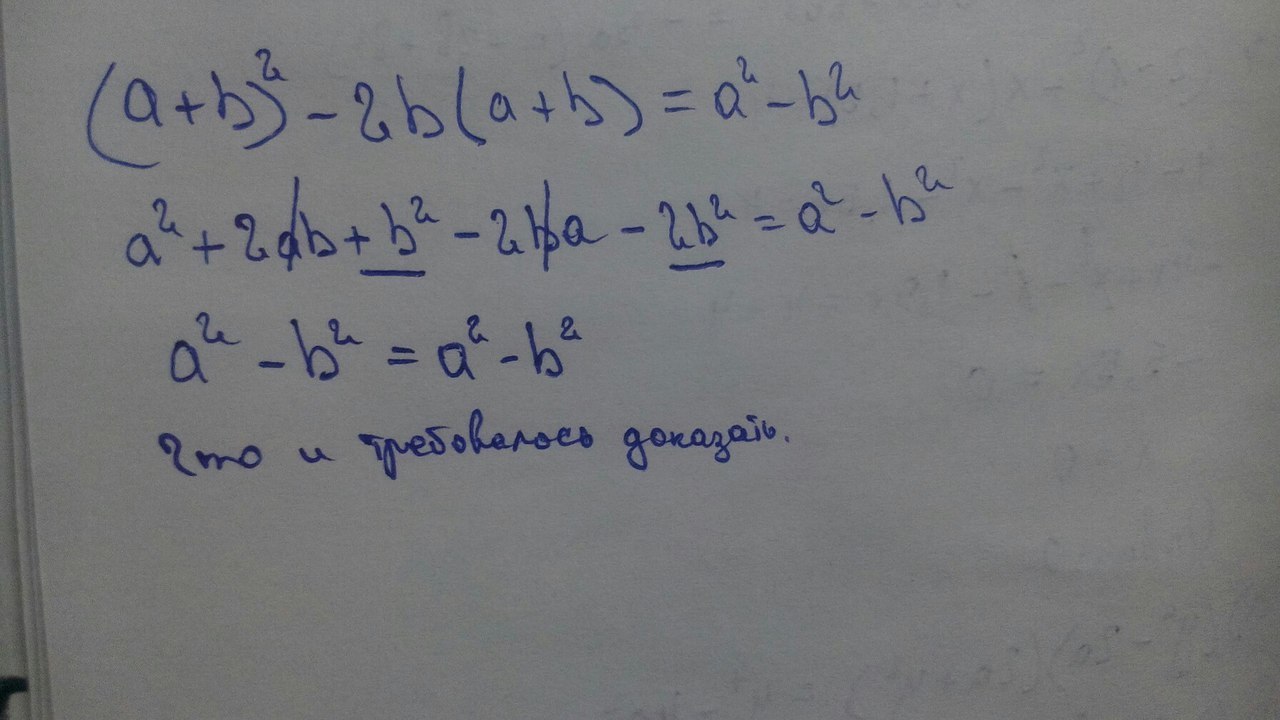 (a+b)² - 2b(a+b) = a² - b²
a² + 2ab + b² - 2ba - 2b² = a² - b²
a² - b² = a² - b²
Что и требовалось доказать.